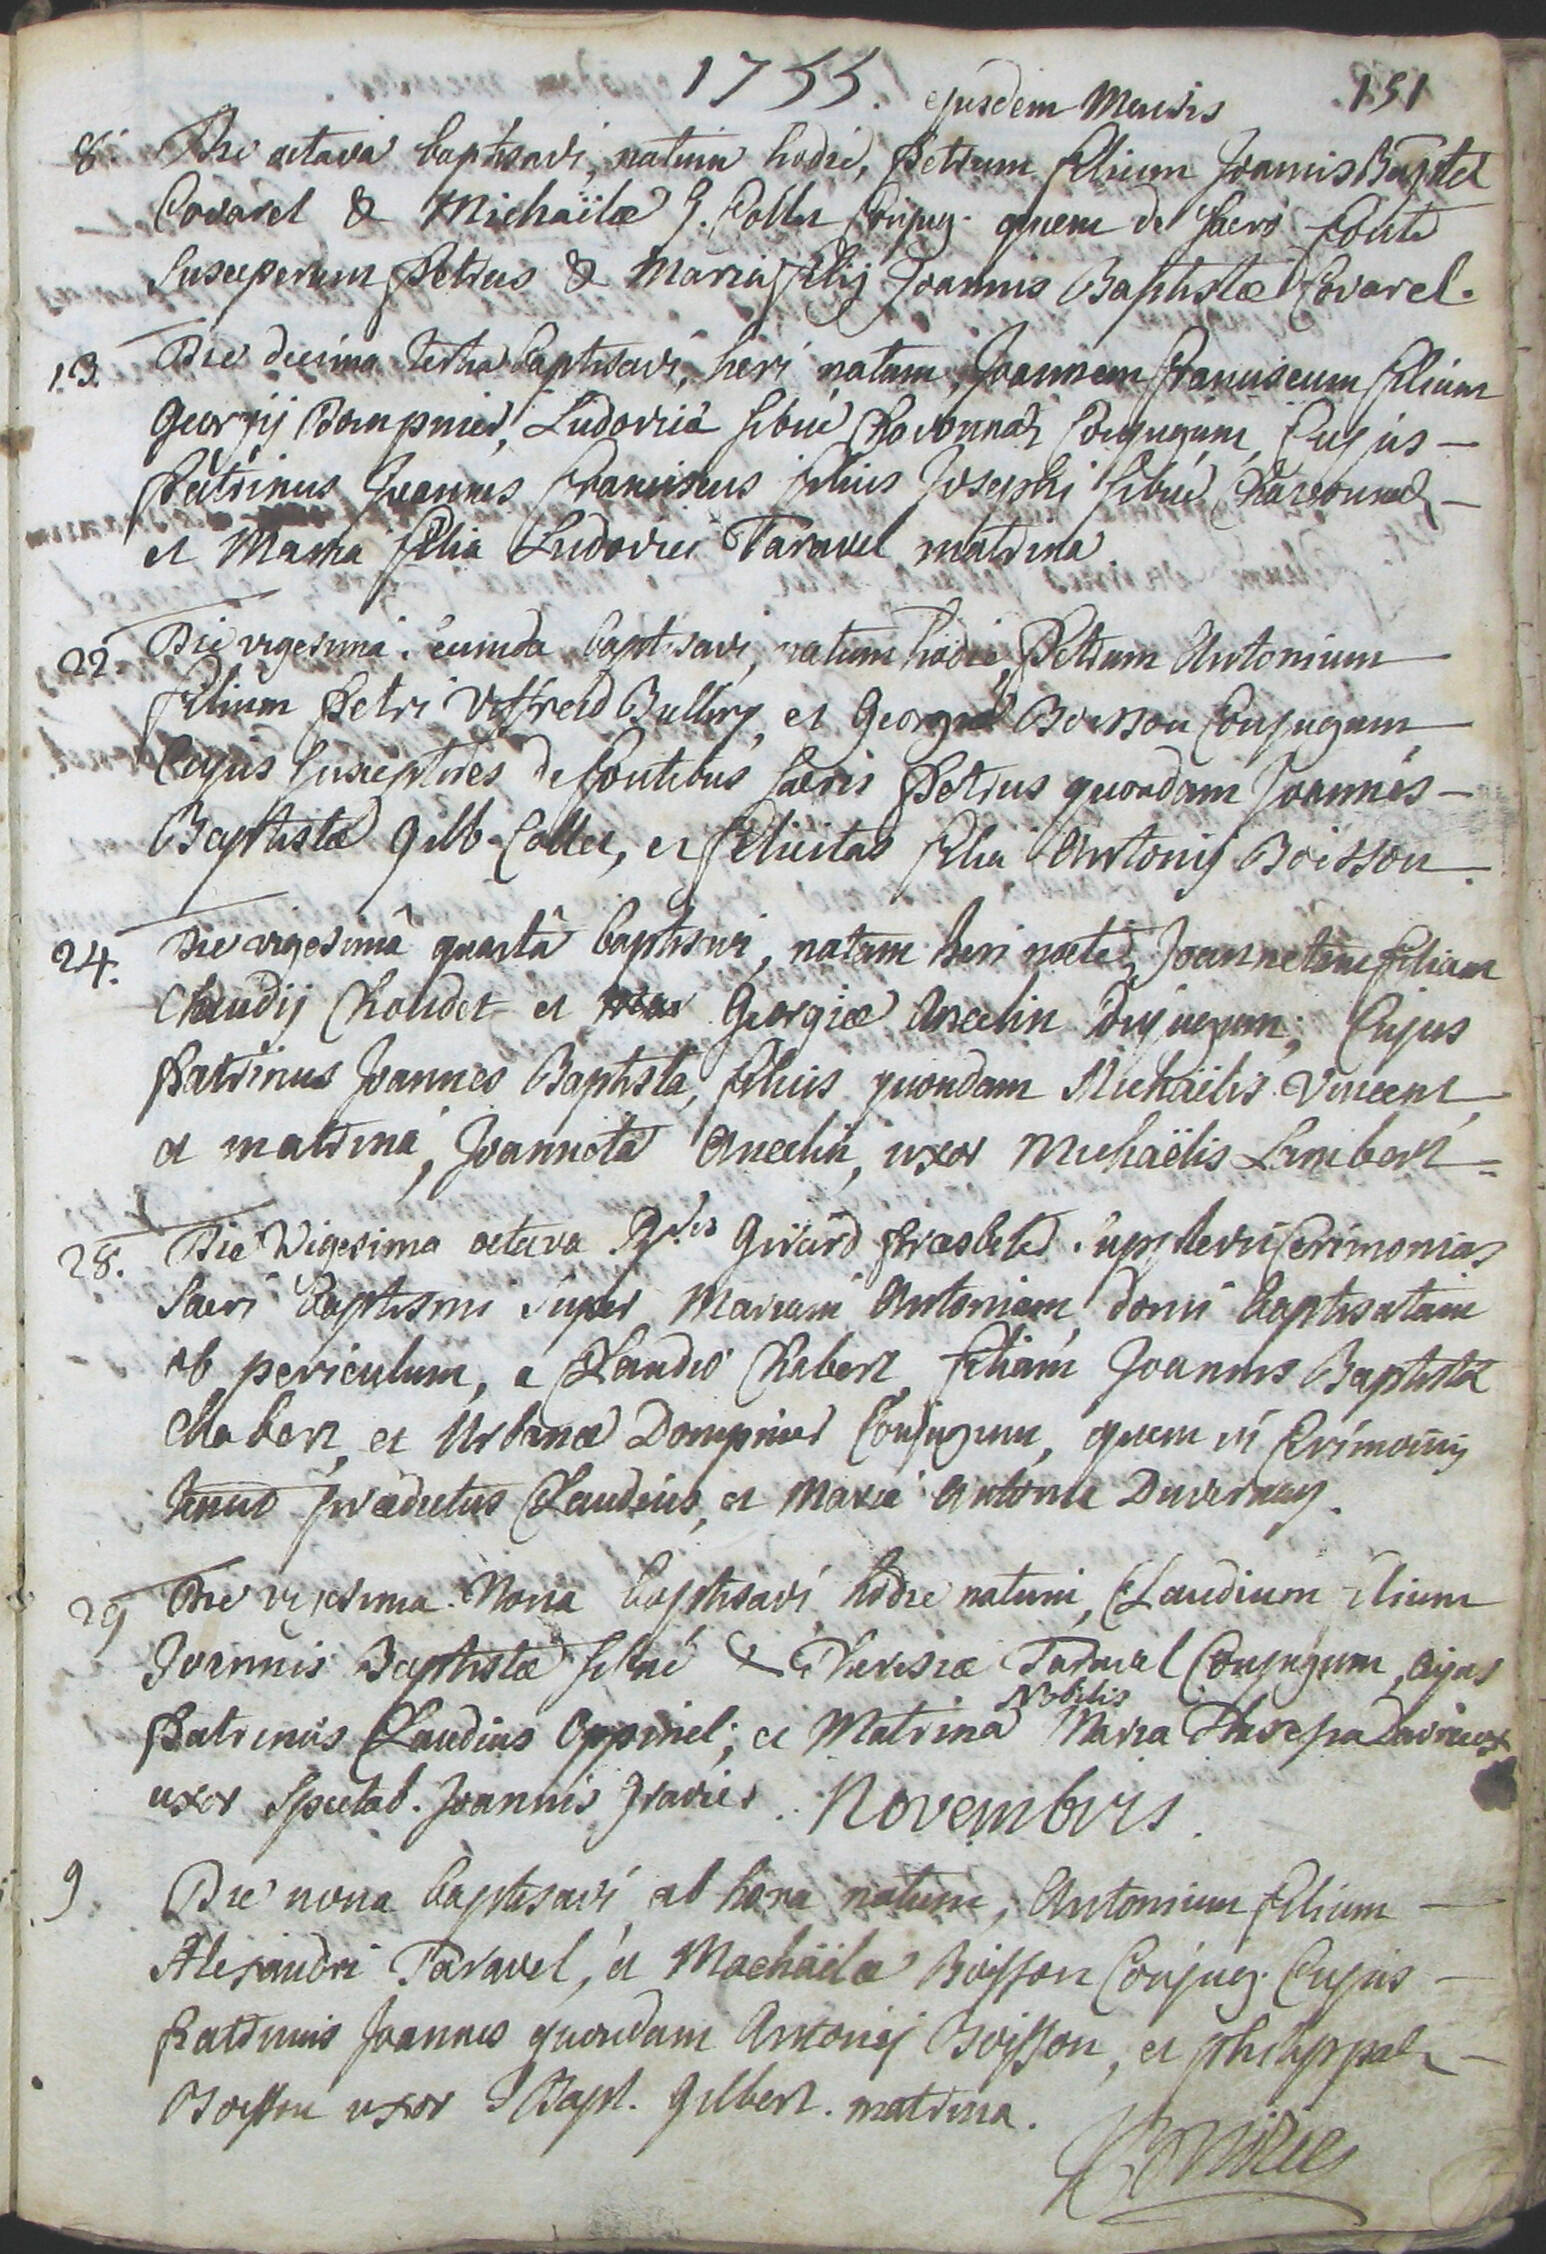 1755. ejusdem Mensis 151
8. Die octava baptisavi, natum hodie, Petrum filium Joannis Baptistæ
Covarel & Michaëlæ G. Collet Conjug. quem de Sacro fonte
Susceperunt Petrus & Maria filij Joannis Baptistæ Covarel.
13. Die decima tertia baptisavi, heri natum, Joannem Franciscum filium
Georgij Dompnier, Ludovicæ Sibué Chavonnaz Conjugum, Cujus -
Patrinus Joannes Franciscus filius Josephi Sibué Chavonnaz -
et Maria filia Ludovici Taravel matrina
22. Die vigesima secunda baptisavi, natum hodie, Petrum Antonium
filium Petri Viffred Bulliery, et Georgiæ Boisson Conjugum,
Cujus Susceptores de fontibus Sacris Petrus quondam Joannis -
Baptistæ Gilb-Collet, et felicitas filia Antonij Boisson.
24. Die vigesimâ quartâ baptisavi, natam heri nocte, Joannetam filiam
Claudij Choudet et Georgiæ Ancelin Conjugum; Cujus
Patrinus Joannes Baptista, filius quondam Michaëlis Vincent,
et matrina, Joanneta Ancelin, uxor Michaëlis Lambert =
28. Die Vigesima octava Girard Præsbeter Supplevi Cerimonias
Sacri baptismi super Mariam Antoniam domi baptisatam
ob periculum, a Claudio Chabert, filiam Joannis Baptistæ
Chabert, et Urbanæ Dompnier Conjugum, quem in Cerimoniis
tenuit prædictus Claudius, et Maria Antonia Duvernay.
29 Die vigesima Nona baptisavi hodie natum, Claudium filium
Joannis Baptistæ Sibué & Theresiæ Taravel Conjugum, cujus
Patrinus Claudius Oppinel; et Matrina Nobilis Maria Josepha Davrieux
uxor Spectab. Joannis Gravier. Novembris.
9 Die nona baptisavi, ab hora natum, Antonium filium -
Alexandri Taravel, et Machaëlæ Boisson Conjug. Cujus -
Patrinus Joannes quondam Antonij Boisson, et Philippa -
Boisson uxor J Bapt. Gilbert. matrina.